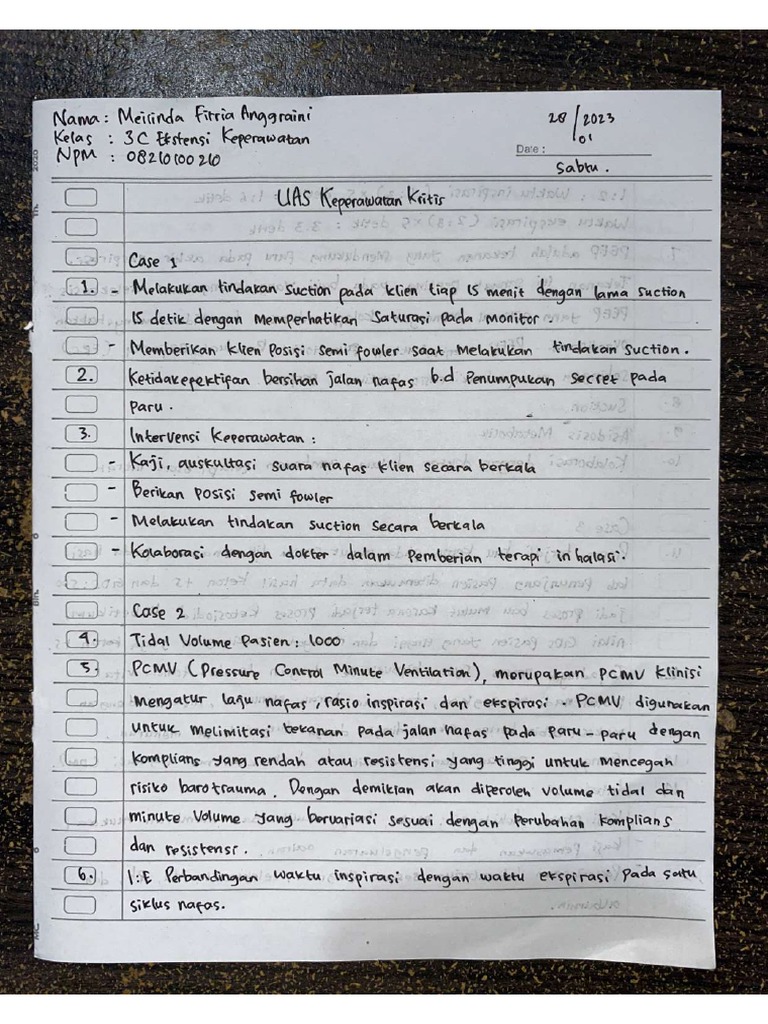 Nama : Meilinda Fitria Anggraini
Kelas : 3C Ekstensi Keperawatan
NPM : 0826100026
28/01 2023
Date :
Sabtu.
UAS Keperawatan Kritis
Case 1
1. - Melakukan tindakan suction pada klien tiap 15 menit dengan lama suction
15 detik dengan memperhatikan saturasi pada monitor.
- Memberikan klien posisi semi fowler saat melakukan tindakan suction.
2. Ketidakepektifan bersihan jalan nafas b.d Penumpukan secret pada
paru.
3. Intervensi Keperawatan :
- Kaji, auskultasi suara nafas klien secara berkala
- Berikan posisi semi fowler
- Melakukan tindakan suction secara berkala
- Kolaborasi dengan dokter dalam Pemberian terapi inhalasi.
Case 2
4. Tidal Volume Pasien : 1000
5. PCMV (Pressure Control Minute Ventilation), merupakan PCMV klinisi
mengatur laju nafas, rasio inspirasi dan ekspirasi. PCMV digunakan
untuk melimitasi tekanan pada jalan nafas pada paru-paru dengan
komplians yang rendah atau resistensi yang tinggi untuk mencegah
risiko barotrauma. Dengan demikian akan diperoleh volume tidal dan
minute volume yang bervariasi sesuai dengan perubahan komplians
dan resistensi.
6. I:E Perbandingan waktu inspirasi dengan waktu ekspirasi pada satu
siklus nafas.